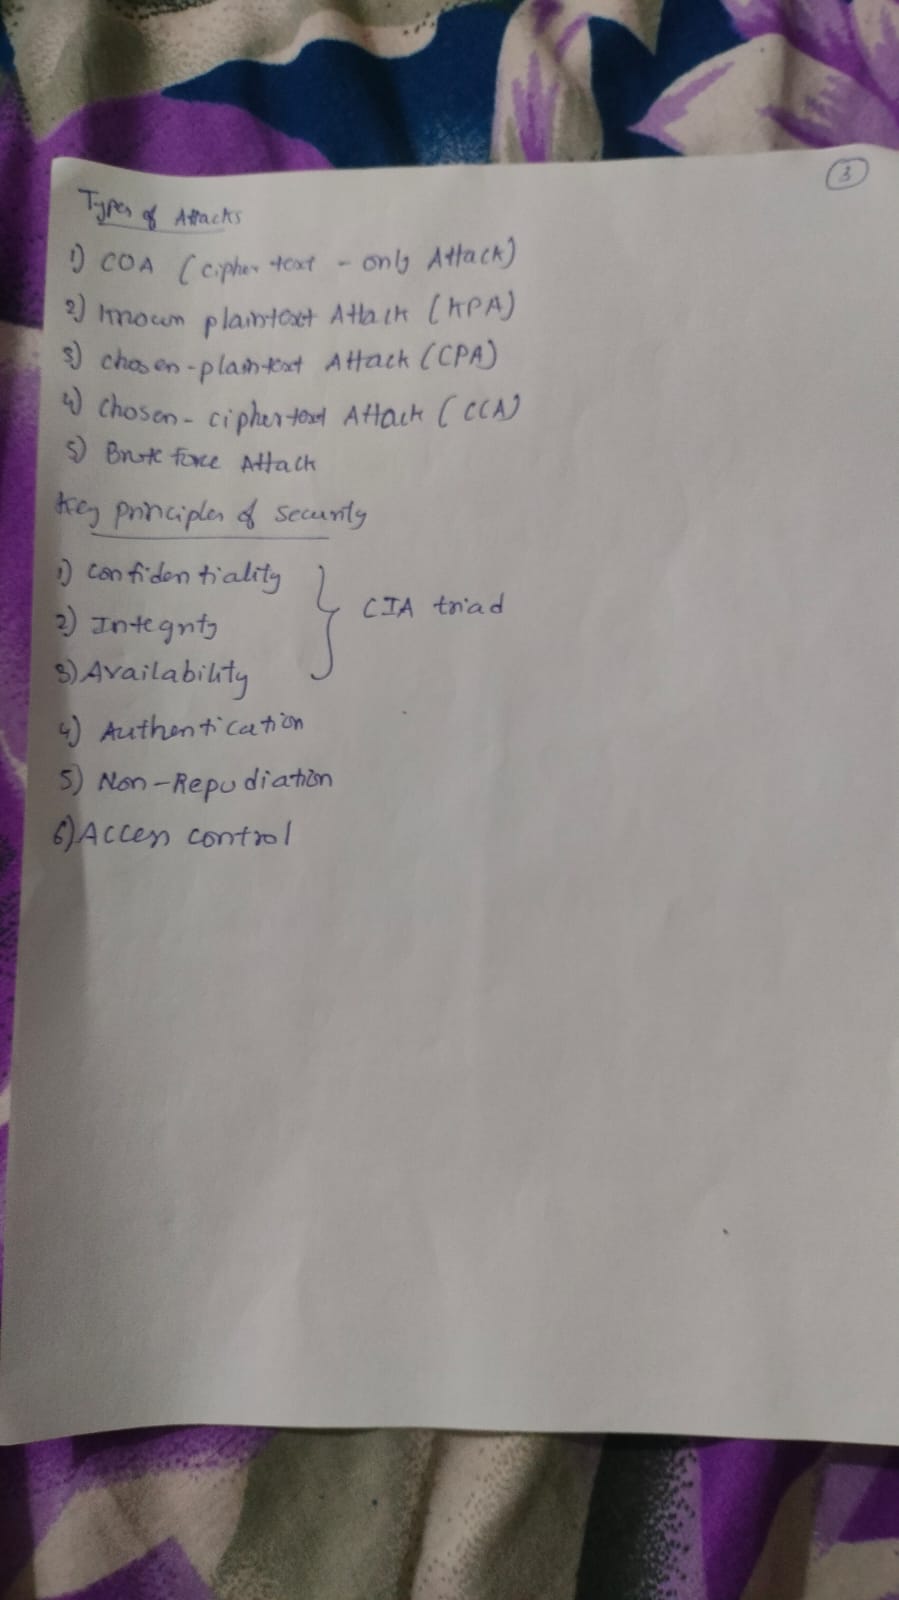 3
Types of Attacks
1) COA (cipher text - only Attack)
2) known plaintext Attack (KPA)
3) chosen-plaintext Attack (CPA)
4) Chosen-ciphertext Attack (CCA)
5) Brute force Attack
Key principles of security
1) confidentiality
2) Integrity
} CIA triad
3) Availability
4) Authentication
5) Non-Repudiation
6) Access control